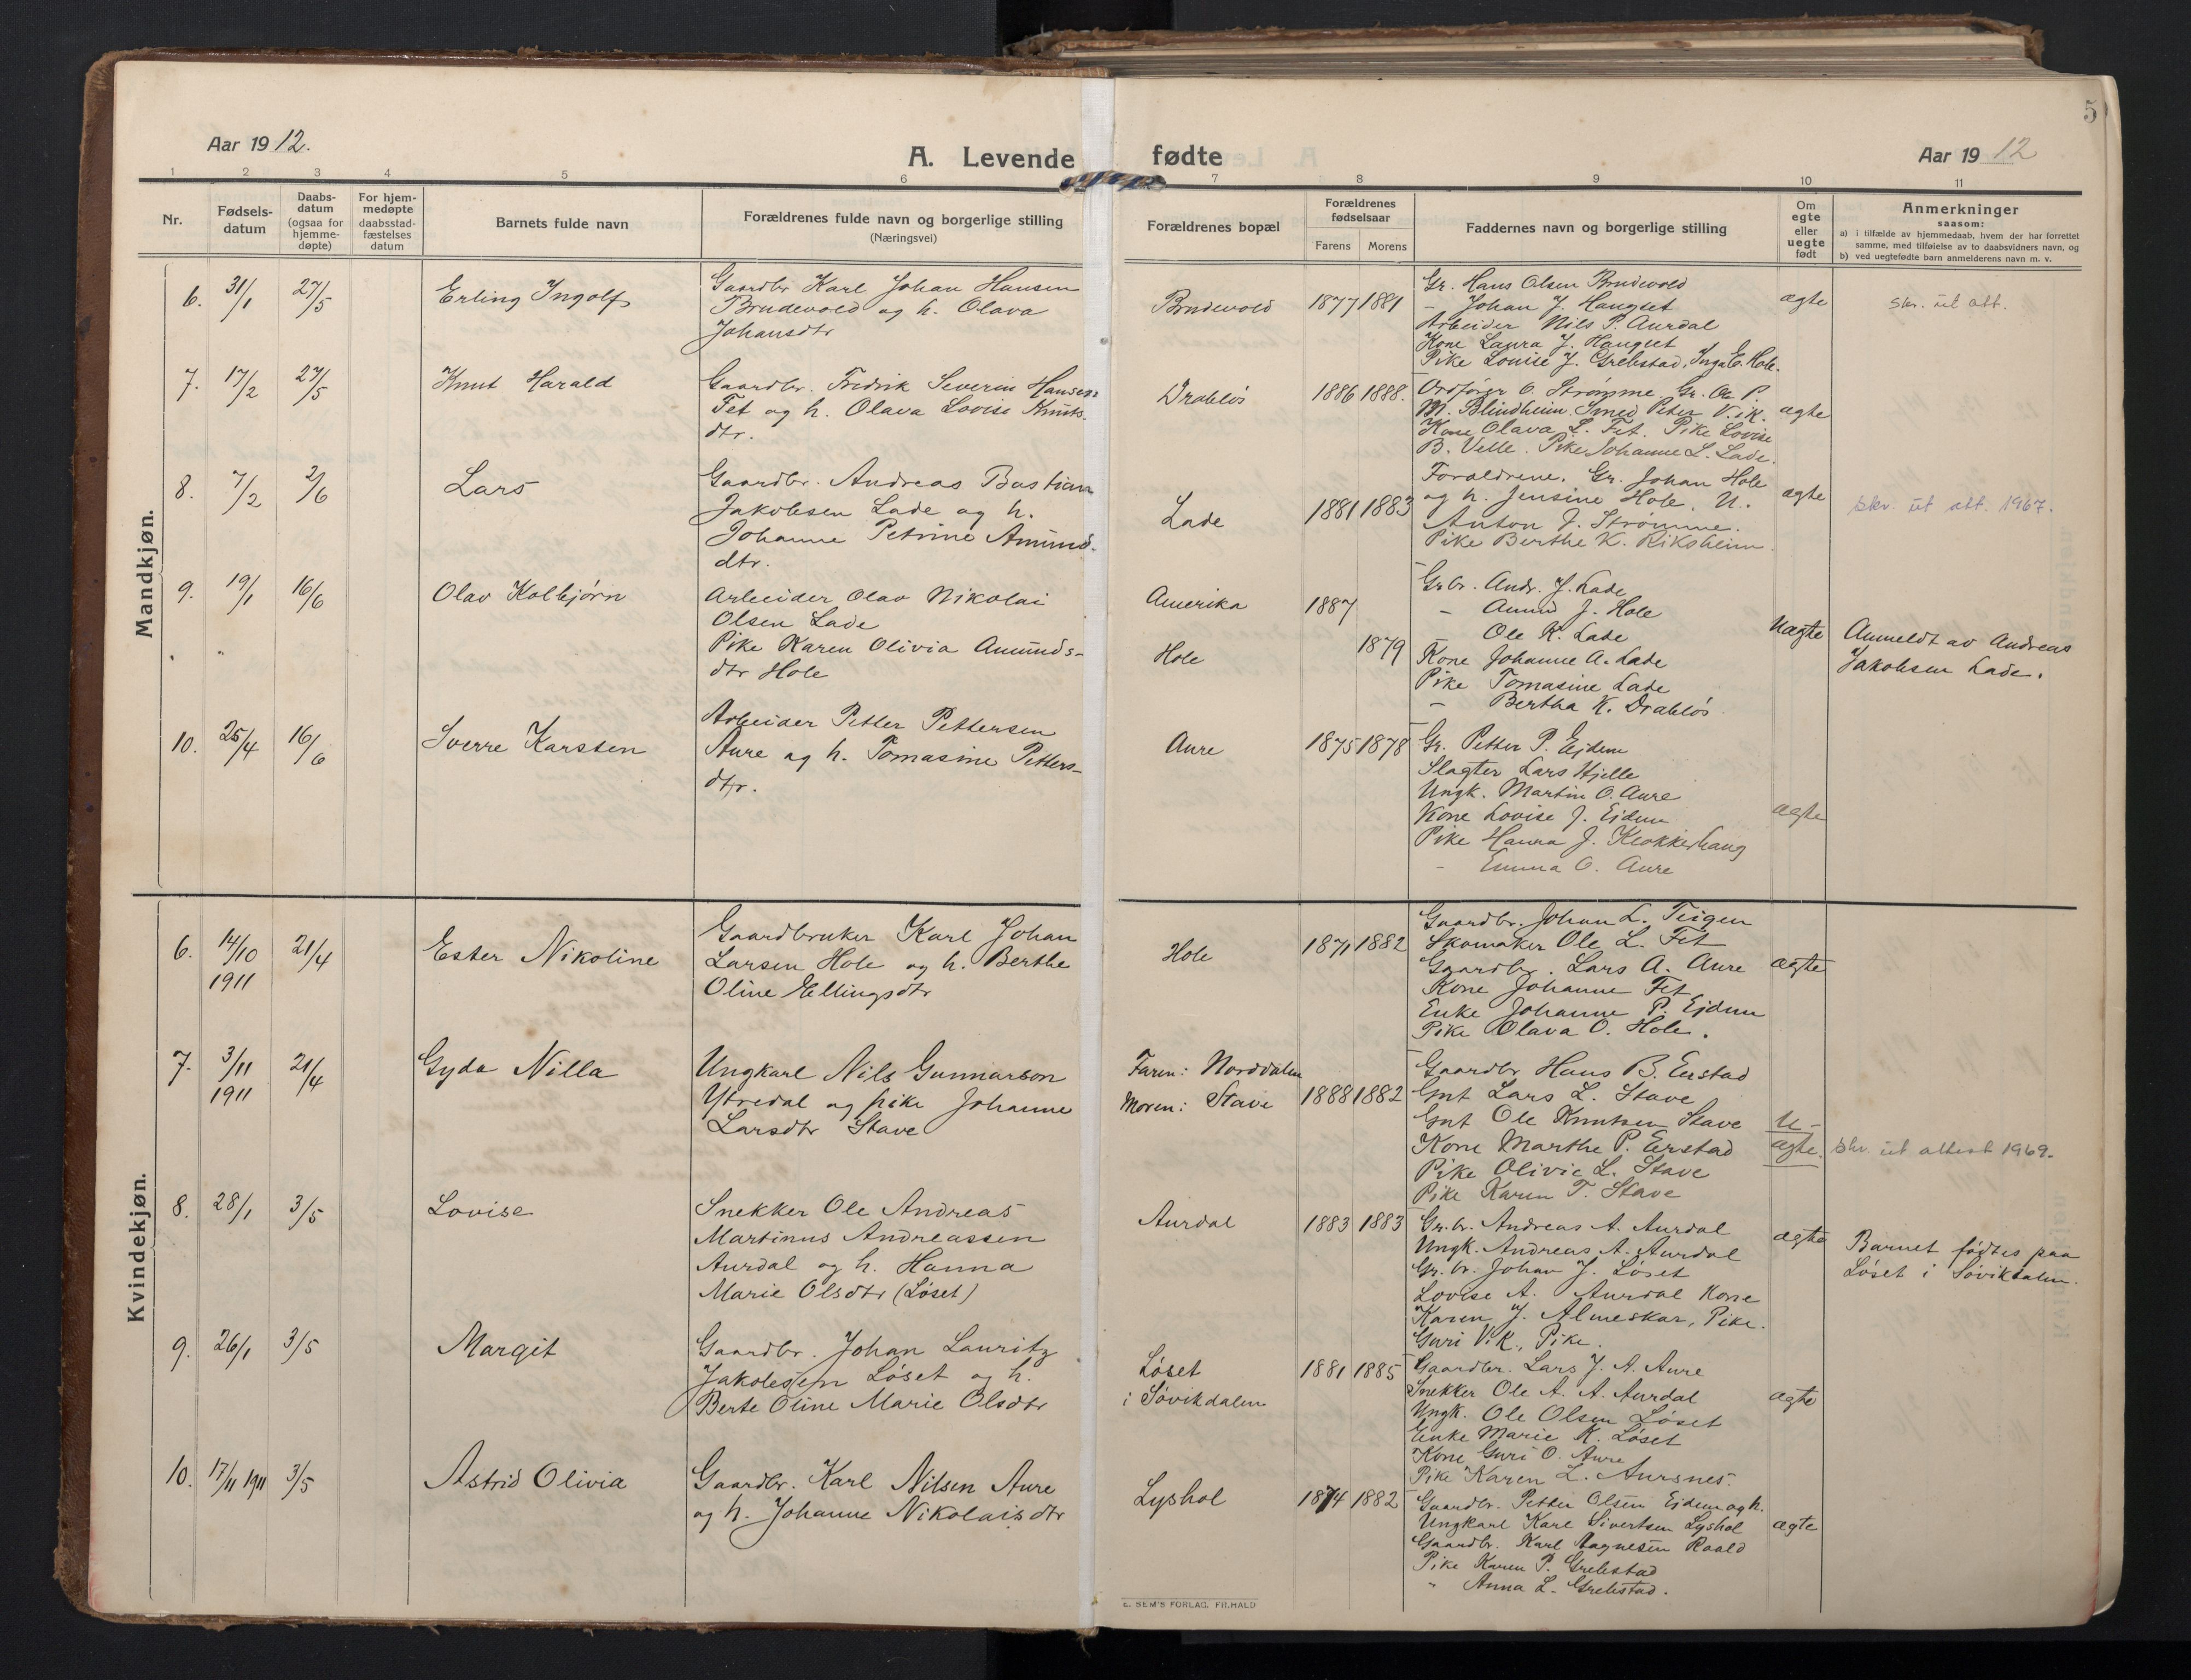 5
Aar 1912.
A. Levende fødte
Aar 1912
1 2 3 4 5 6 7 8 9 10 11
Nr.
Fødsels-
datum
Daabs-
datum
(ogsaa for
hjemme-
døpte)
For hjem-
medøpte
daabsstad-
fæstelses
datum
Barnets fulde navn
Forældrenes fulde navn og borgerlige stilling
(Næringsvei)
Forældrenes bopæl
Forældrenes
fødselsaar
Farens Morens
Faddernes navn og borgerlige stilling
Om
egte
eller
uegte
født
Anmerkninger
saasom:
a) i tilfælde av hjemmedaab, hvem der har forrettet
samme, med tilføielse av to daabsvidners navn, og
b) ved uegtefødte barn anmelderens navn m. v.
Mandkjøn.
6. 31/1 27/5 Erling Ingolf
Gaardbr Karl Johan Hansen
Brudevold og h. Olava
Johansdtr
Brudevold 1877 1881
Gr. Hans Olsen Brudevold
- Johan J. Haugset
Arbeider Nils P. Aurdal
Kone Laura J. Haugset
Pike Louise J. Grebstad, Inga E. Hole.
ægte
skr. ut att.
7. 17/2 27/5 Knut Harald
Gaardbr. Fredrik Severin Hansen
Fet og h. Olava Lovise Knuts-
dtr.
Drabløs 1886 1888.
Ordfører O. Strømme. Gr. Ole P.
M. Blindheim. Smed Peter Vik.
Kone Olava L. Fet. Pike Lovise
B. Velle. Pike Johanne L. Lade.
ægte
8. 7/2 2/6 Lars
Gaardbr. Andreas Bastian
Jakobsen Lade og h.
Johanne Petrine Amunds-
dtr.
Lade 1881 1883
Forældrene. Gr. Johan Hole
og h. Jensine Hole. U.
Anton J. Strømme.
Pike Berthe K. Riksheim.
ægte
skr. ut att. 1967.
9. 19/1 16/6 Olav Kolbjørn
Arbeider Olav Nikolai
Olsen Lade
Pike Karen Olivia Amunds-
dtr Hole
Amerika 1887
Hole 1879
Grbr. Andr. J. Lade
- Amund J. Hole
- Ole K. Lade
Kone Johanne A. Lade
Pike Tomasine Lade
- Bertha K. Drabløs.
Uægte
Anmeldt av Andreas
Jakobsen Lade.
10. 25/4 16/6 Sverre Karsten
Arbeider Petter Pettersen
Aure og h. Tomasine Petters-
dtr.
Aure 1875 1878
Gr. Petter P. Ejdem
Slagter Lars Hjelle
Ungk. Martin O. Aure
Kone Lovise J. Eidem
Pike Hanna J. Klokkerhaug
- Emma O. Aure
ægte
Kvindekjøn.
6. 14/10 1911 21/4 Ester Nikoline
Gaardbruker Karl Johan
Larsen Hole og h. Berthe
Oline Ellingsdtr
Hole 1871 1882
Gaardbr. Johan L. Teigen
Skomaker Ole L. Fet
Gaardbr. Lars A. Aure
Kone Johanne Fet
Enke Johanne P. Ejdem
Pike Olava O. Hole.
ægte
7. 3/11 1911 21/4 Gyda Nilla
Ungkarl Nils Gunnarson
Ytredal og pike Johanne
Larsdtr Stave
Faren: Norddalen
Moren: Stave 1888 1882
Gaardbr Hans B. Erstad
Gmt Lars L. Stave
Gmt Ole Knutsen Stave
Kone Marthe P. Erstad
Pike Olivie L. Stave
Pike Karen T. Stave
U-
ægte.
skr. ut attest 1969.
8. 28/1 3/5 Lovise
Snekker Ole Andreas
Martinus Andreassen
Aurdal og h. Hanna
Marie Olsdtr (Løset)
Aurdal 1883 1883
Gr.br. Andreas A. Aurdal
Ungk. Andreas A. Aurdal
Gr. br. Johan J. Løset
Lovise A. Aurdal Kone
Karen J. Almeskar, Pike.
Guri Vik, Pike.
ægte
Barnet fødtes paa
Løset i Søvikdalen.
9. 26/1 3/5 Margit
Gaardbr. Johan Lauritz
Jakobsen Løset og h.
Berte Oline Marie Olsdtr
Løset
i Søvikdalen 1881 1885
Gaardbr. Lars J. A. Aure
Snekker Ole A. A. Aurdal
Ungk. Ole Olsen Løset
Enke Marie K. Løset
Kone Guri O. Aure
Pike Karen L. Aursnes.
ægte
10. 17/11 1911 3/5 Astrid Olivia
Gaardbr. Karl Nilsen Aure
og h. Johanne Nikolaisdtr
Lyshol 1874 1882
Gaardbr. Petter Olsen Eidem og h.
Ungkarl Karl Sivertsen Lyshol
Gaardbr. Karl Magnesen Roald
Pike Karen P. Grebstad
" Anna L. Grebstad.
ægte
E. SEM'S FORLAG, FR.HALD